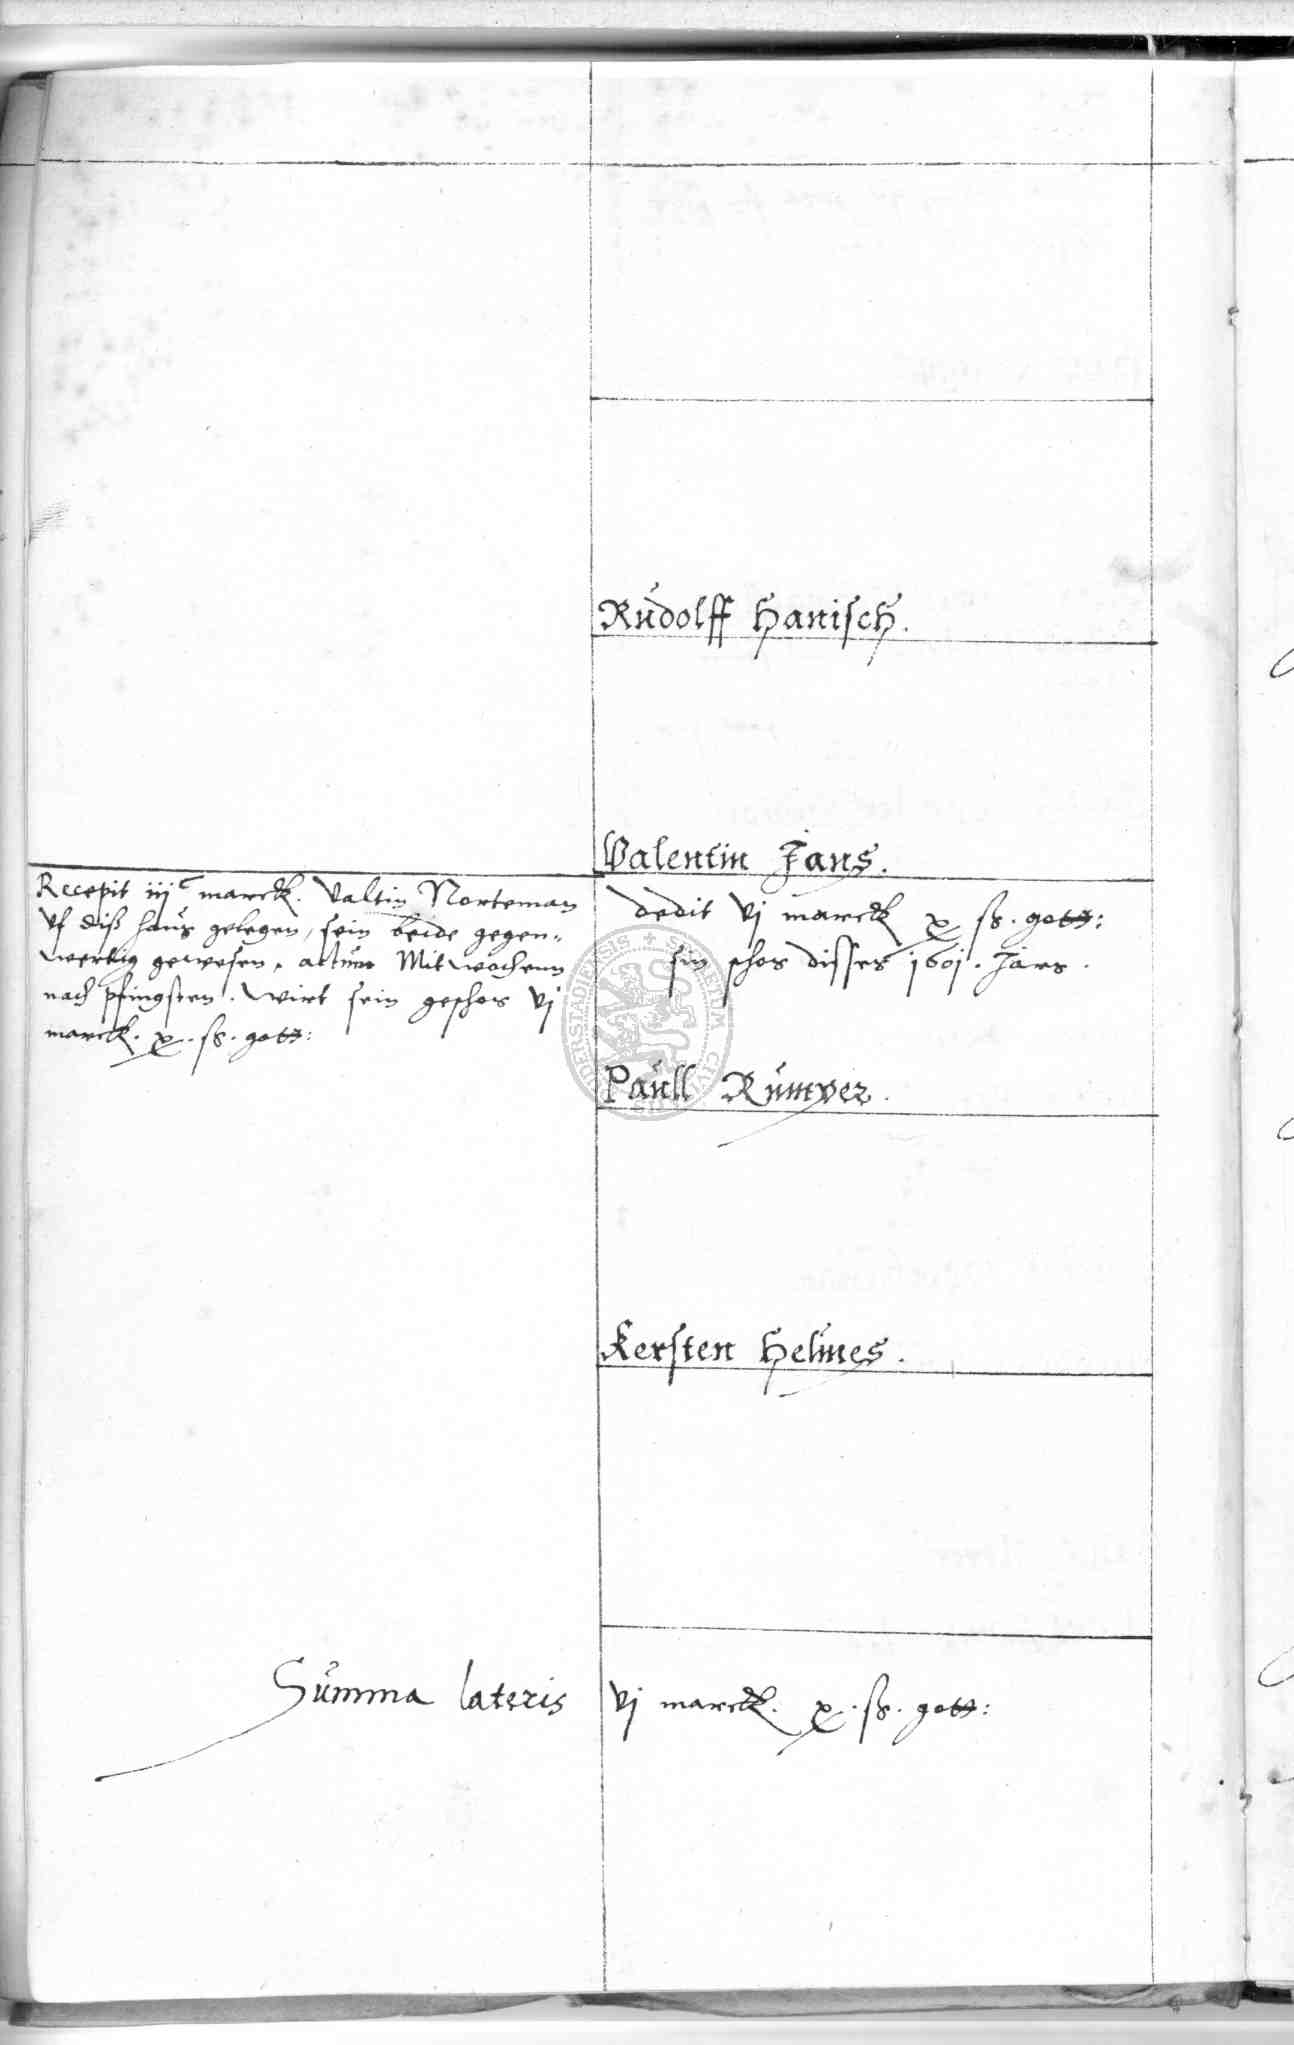 Rudolff Hanisch.
Valentin Jans.
Recepit iijc marck. Valtin Norteman
vf diß haus gelegen, sein beide gegen-
wertig gewesen. actum Mitwochenn
nach pfingsten. Wirt sein geschos vj
marck. x. ß. gott:
dedit vj marck x ß. gott:
sin schos disses 1601. Jars.
Paull Rumper.
Kersten Helmes.
Summa lateris vj marck. x. ß. gott:
SECRETUM CIVITATIS DUDERSTADIENSIS